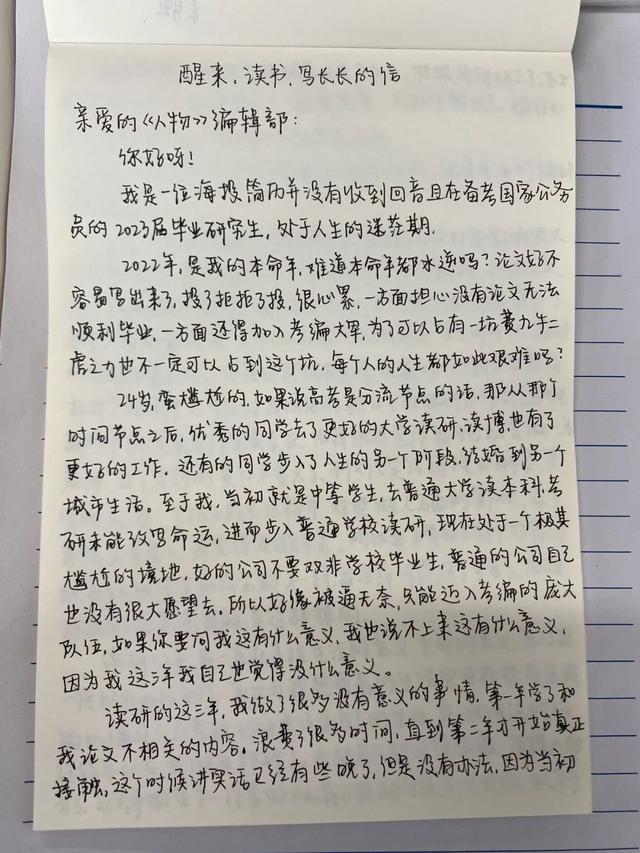 醒来,读书,写长长的信
亲爱的《人物》编辑部:
你好呀!
我是一位海投简历并没有收到回音且在备考国家公务
员的2023届毕业研究生,处于人生的迷茫期.
2022年,是我的本命年,难道本命年都水逆吗?论文好不
容易写出来了,投了拒拒了投,很心累,一方面担心没有论文无法
顺利毕业,一方面还得加入考编大军,为了可以占有一坑费九牛二
虎之力也不一定可以占到这个坑,每个人的人生都如此艰难吗?
24岁,蛮尴尬的,如果说高考是分流节点的话,那从那个
时间节点之后,优秀的同学去了更好的大学读研、读博,也有了
更好的工作.还有的同学步入了人生的另一个阶段,结婚到另一个
城市生活。至于我,当初就是中等学生,去普通大学读本科,考
研未能改写命运,进而步入普通学校读研,现在处于一个极其
尴尬的境地,好的公司不要双非学校毕业生,普通的公司自己
也没有很大愿望去,所以好像被逼无奈,只能迈入考编的庞大
队伍,如果你要问我这有什么意义,我也说不上来这有什么意义,
因为我这三年我自己也觉得没什么意义。
读研的这三年,我做了很多没有意义的事情.第一年学了和
我论文不相关的内容。浪费了很多时间,直到第二年才开始真正
接触,这个时候讲笑话已经有些晚了,但是没有办法,因为当初